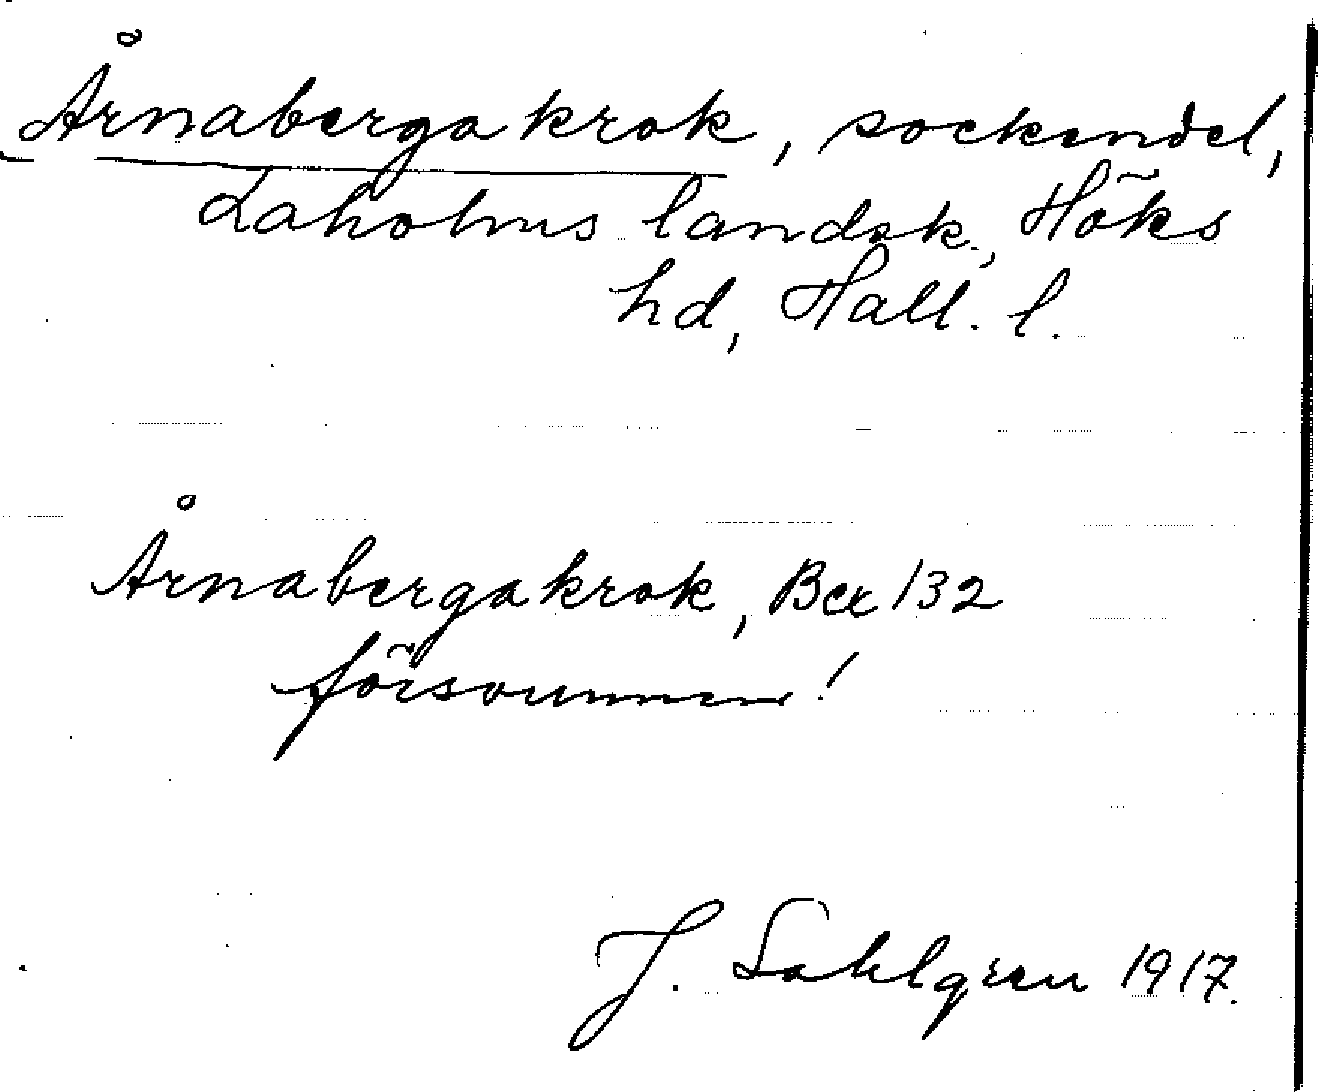 Årnabergakrok, sockendel,
Laholms landsk., Höks
hd, Hall. l.
Årnabergakrok, Bex 132
försvunnen!
J. Sahlgren 1917.